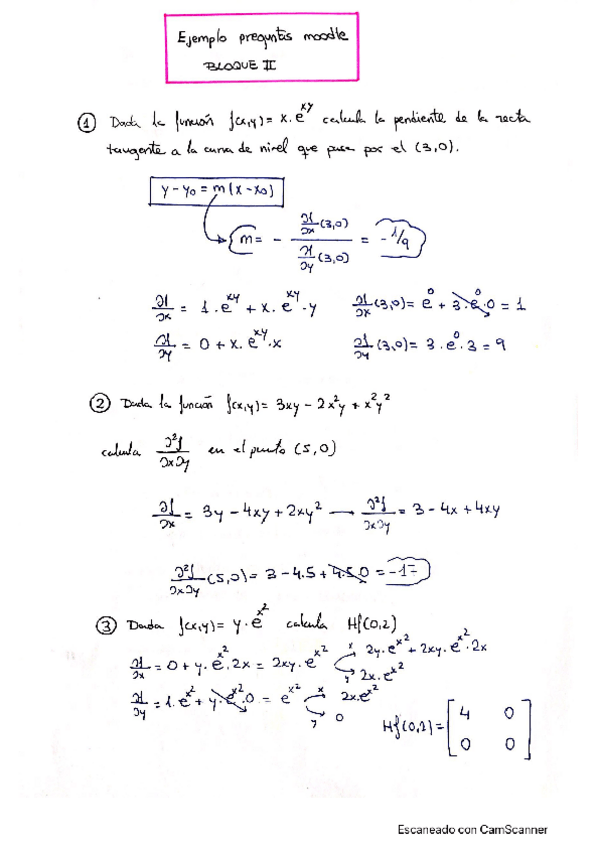 Ejemplo preguntas moodle
BLOQUE II
① Dada la función f(x,y) = x·e^xy calcula la pendiente de la recta
tangente a la curva de nivel que pasa por el (3,0).
y - y₀ = m(x - x₀)
m = - ∂f/∂x (3,0) / ∂f/∂y (3,0) = -1/9
∂f/∂x = 1·e^xy + x·e^xy·y ∂f/∂x (3,0) = e^0 + 3·e^0·0 = 1
∂f/∂y = 0 + x·e^xy·x ∂f/∂y (3,0) = 3·e^0·3 = 9
② Dada la función f(x,y) = 3xy - 2x²y + x²y²
calcula ∂²f/∂x∂y en el punto (5,0)
∂f/∂x = 3y - 4xy + 2xy² → ∂²f/∂x∂y = 3 - 4x + 4xy
∂²f/∂x∂y (5,0) = 3 - 4·5 + 4·5·0 = -17
③ Dada f(x,y) = y·e^x² calcula Hf(0,2)
∂f/∂x = 0 + y·e^x²·2x = 2xy·e^x² x 2y·e^x² + 2xy·e^x²·2x
y 2x·e^x²
∂f/∂y = 1·e^x² + y·e^x²·0 = e^x² x 2x·e^x²
y 0
Hf(0,2) = [4 0
0 0]
Escaneado con CamScanner